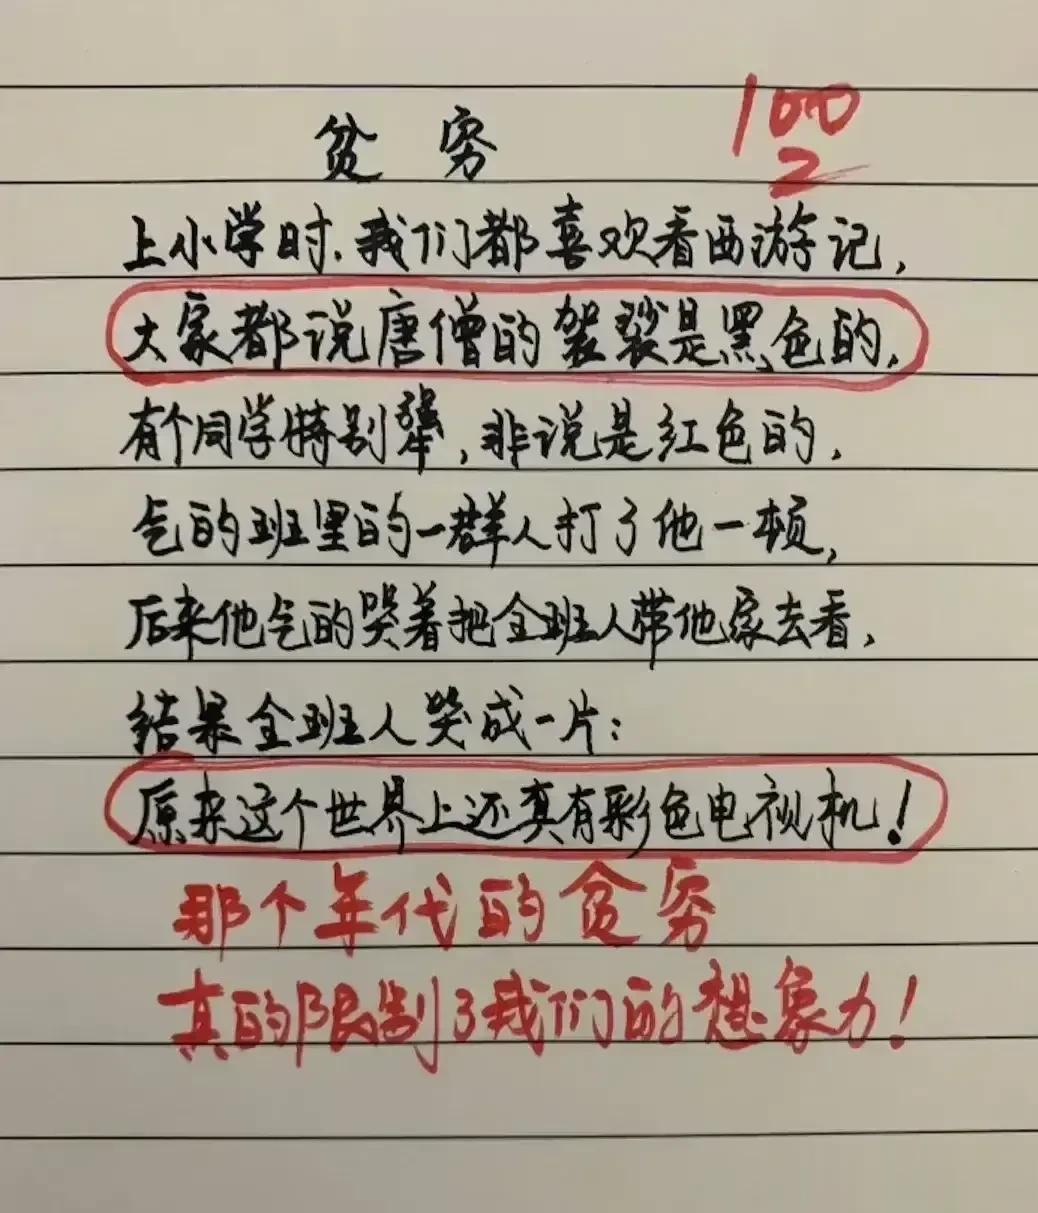 贫穷
100
上小学时、我们都喜欢看西游记,
大家都说唐僧的袈裟是黑色的,
有个同学特别犟,非说是红色的,
气的班里的一群人打了他一顿,
后来他气的哭着把全班人带他家去看,
结果全班人哭成一片:
原来这个世界上还真有彩色电视机!
那个年代的贫穷
真的限制了我们的想象力!